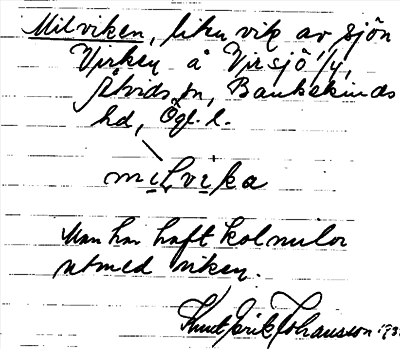 Milviken, liten vik av sjön
Virken å Virsjö 1/4,
Åtvids sn, Bankekinds
hd, Ögl. l.
milvika
Man har haft kolmilor
utmed viken.
Knut Erik Johansson 193